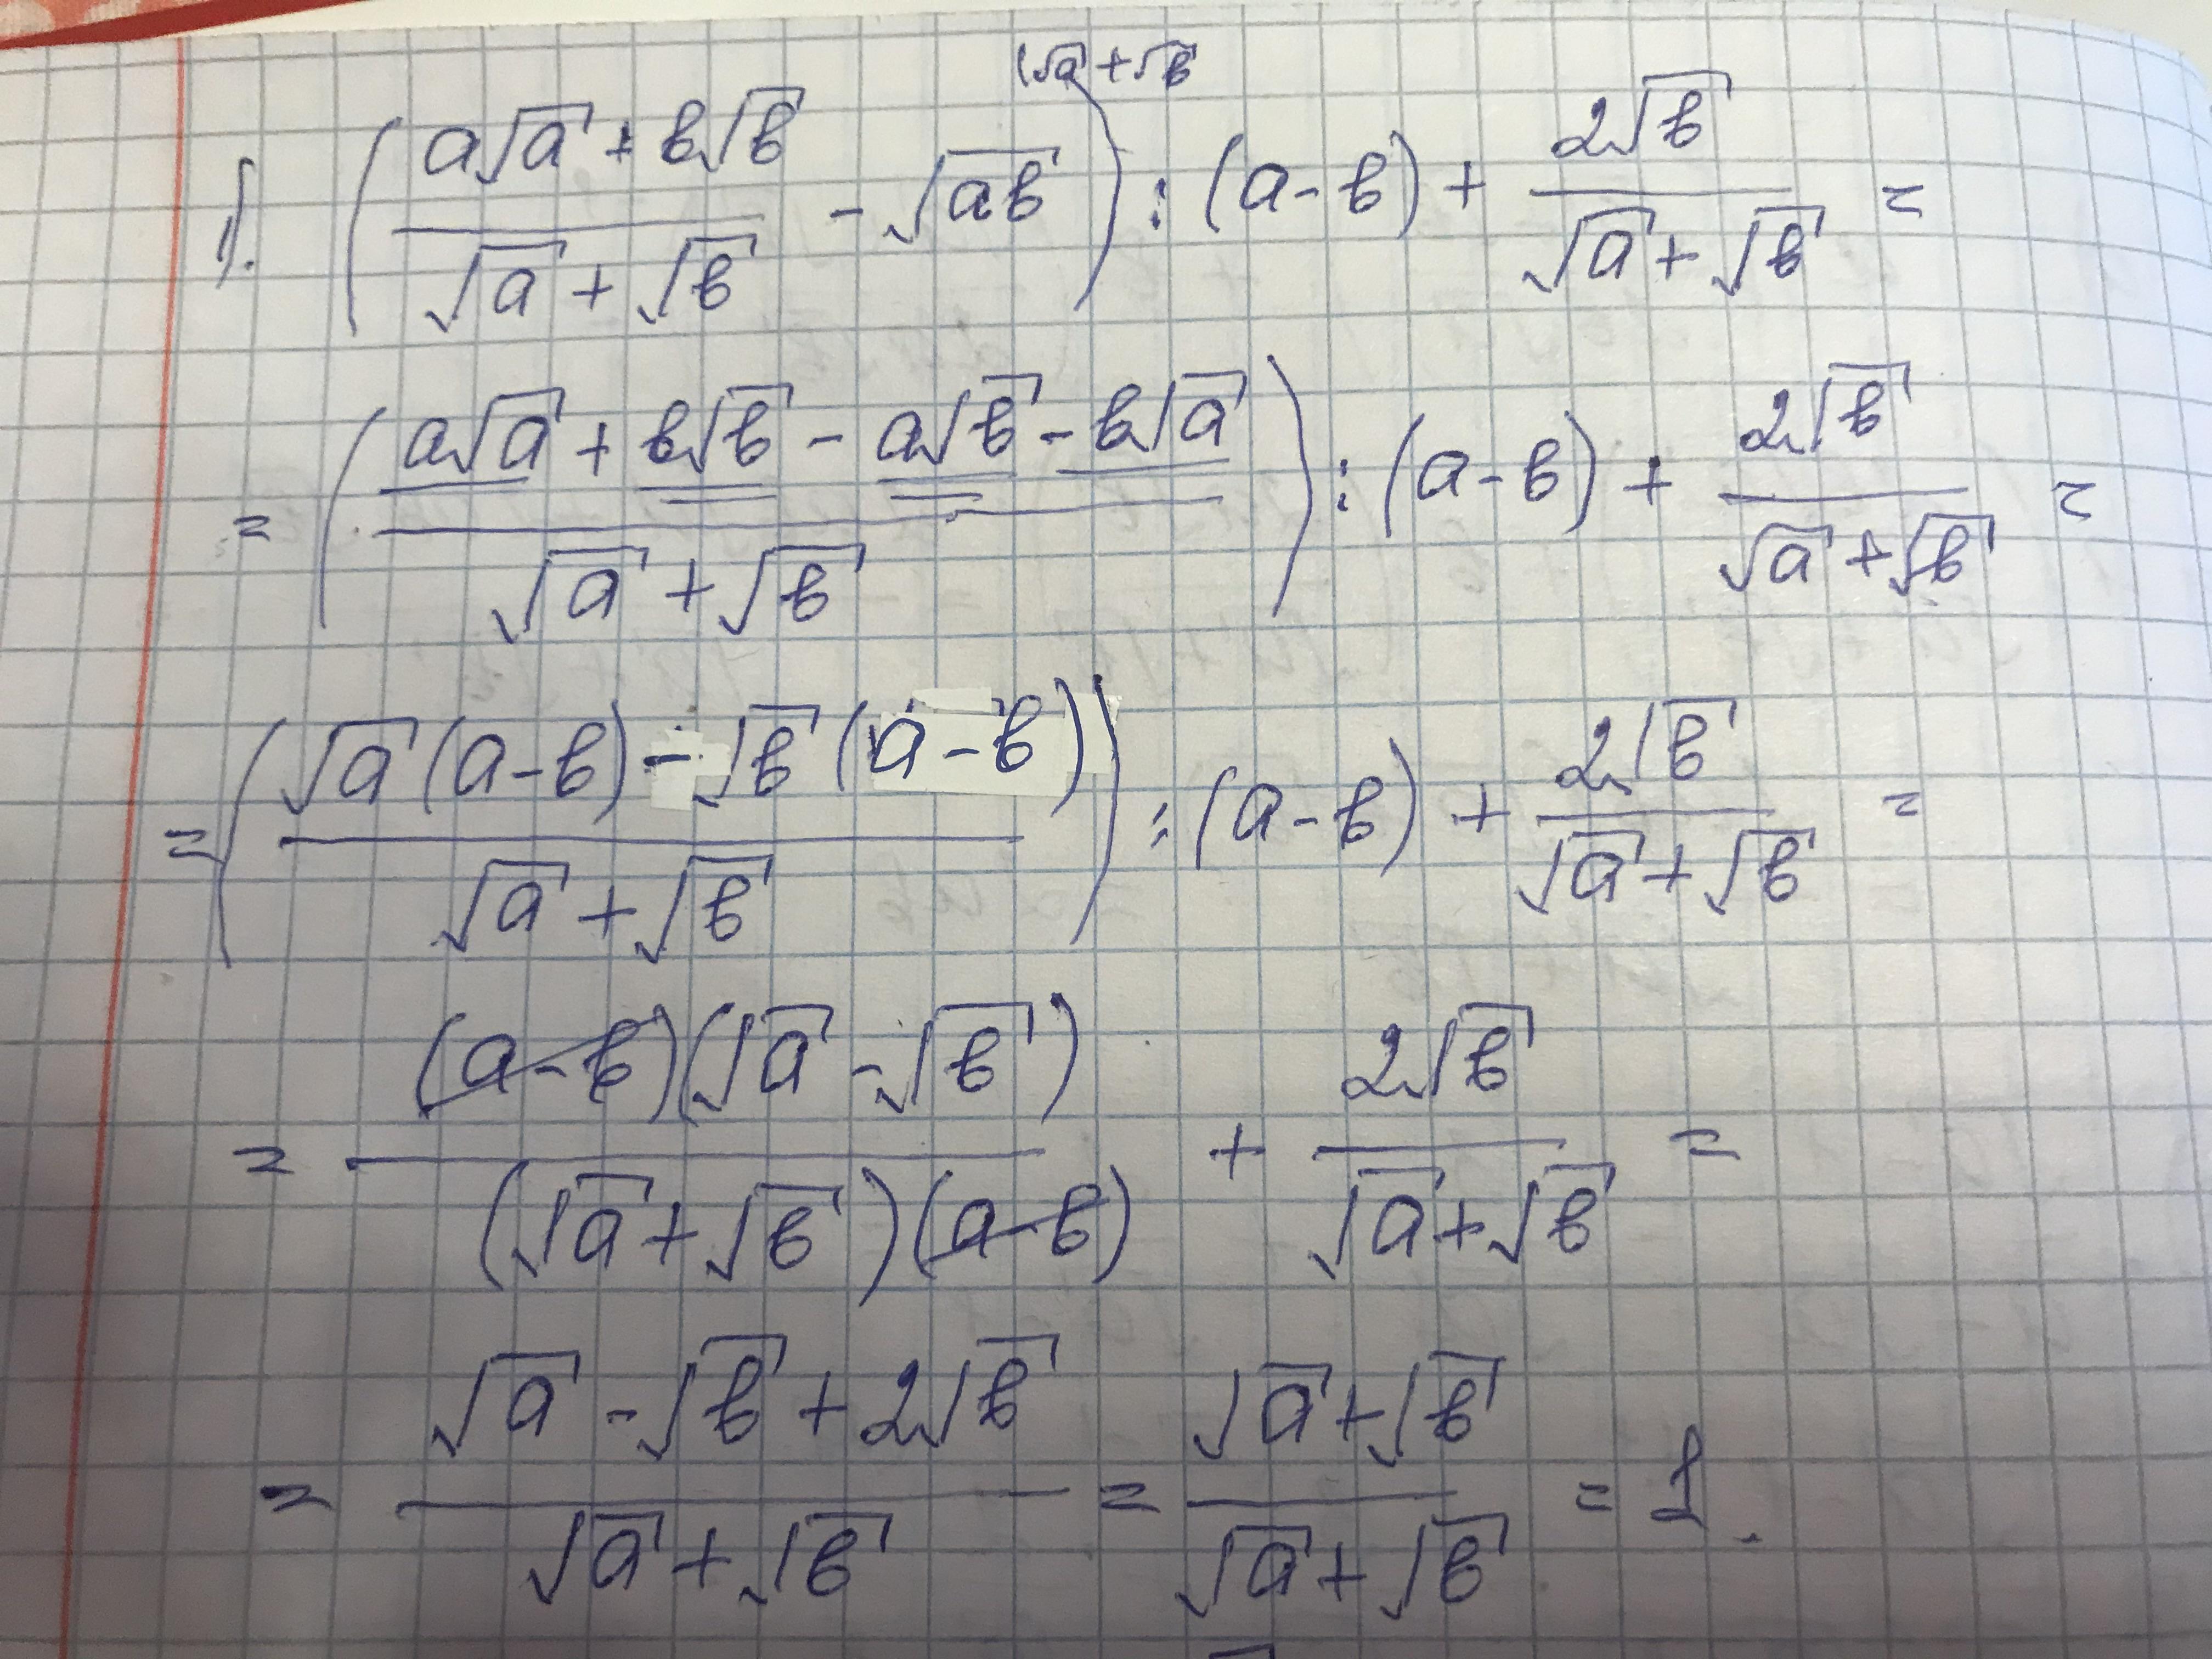 (√a + √b
1). ((a√a + b√b)/(√a + √b) - √ab) : (a-b) + 2√b/(√a + √b) =
= ((a√a + b√b - a√b - b√a)/(√a + √b)) : (a-b) + 2√b/(√a + √b) =
= ((√a(a-b) - √b(a-b))/(√a + √b)) : (a-b) + 2√b/(√a + √b) =
= (a-b)(√a - √b)/((√a + √b)(a-b)) + 2√b/(√a + √b) =
= (√a - √b + 2√b)/(√a + √b) = (√a + √b)/(√a + √b) = 1.